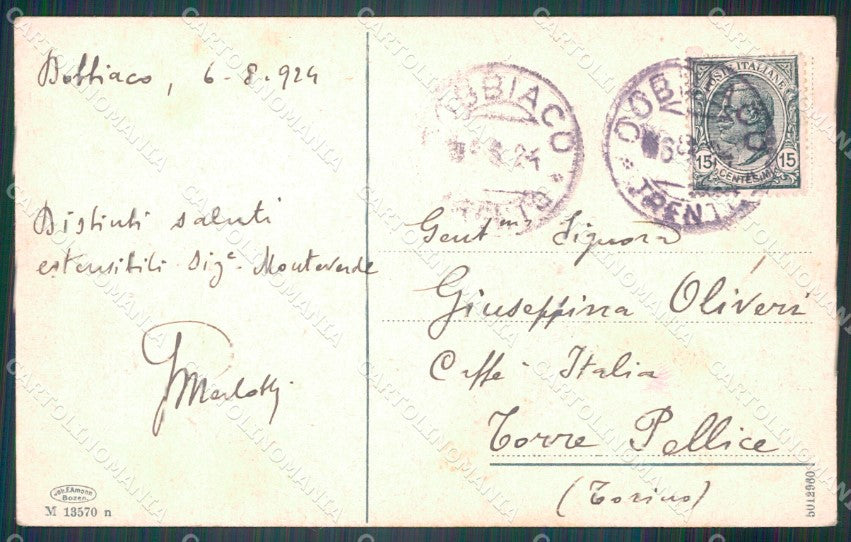 Dobbiaco, 6-8-924
Distinti saluti
estensibili Sigᵉ Monteverde
Merlotti
Joh. F. Amonn
Bozen.
M 13570 n
DOBBIACO
6 8 24
TRENTO
DOBBIACO
TRENTO
POSTE ITALIANE
15 15
CENTESIMI
Gentᵐᵃ Signora
Giuseppina Oliveri
Caffè Italia
Torre Pellice
(Torino)
5012960
CARTOLINOMANIA